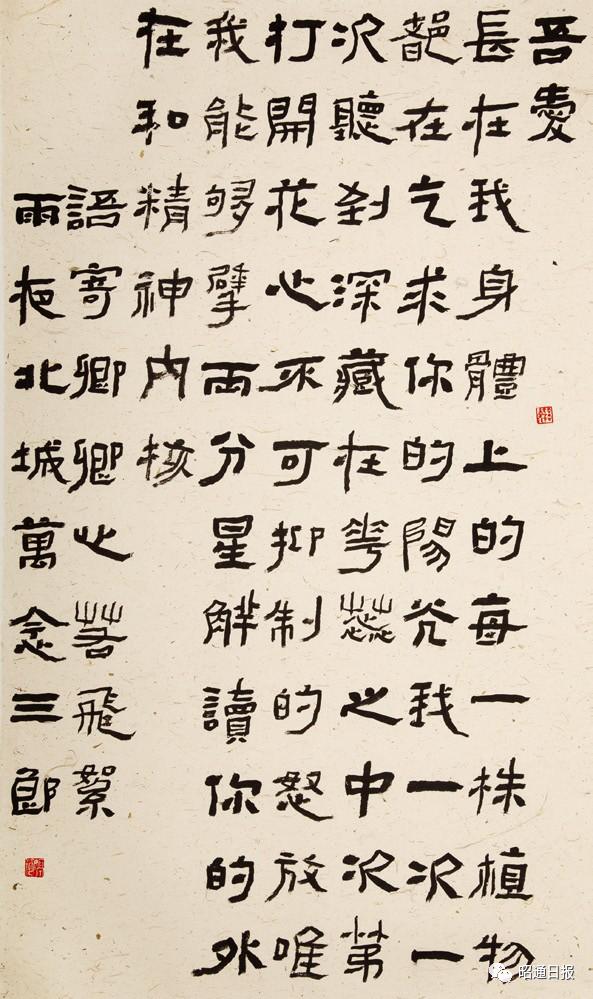 吾愛
長在我身體上的每一株植物
都在乞求你的陽光我一次一
次聽到深藏在華蕊之中次第
打開花心不可抑制的怒放唯
我能够擘两分星解讀你的外
在和精神内核
語寄卿卿心若飛絮
雨夜北城萬念三郎
昭通日报